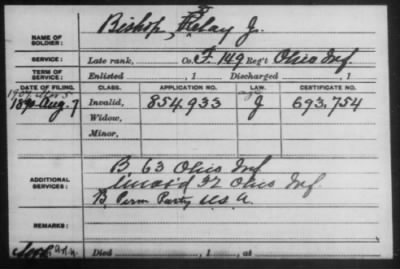 Bishop, Relay J.
NAME OF SOLDIER:
SERVICE: Late rank, Co. F, 149 Reg't Ohio Inf.
TERM OF SERVICE: Enlisted , 1 Discharged , 1
DATE OF FILING. CLASS. APPLICATION NO. LAW. CERTIFICATE NO.
1890 Aug. 7 Invalid, 854,933 J 693,754
Widow,
Minor,
ADDITIONAL SERVICES: B 63 Ohio Inf
32 Ohio Inf.
B. Perm Party U.S.A.
REMARKS:
Died , 1 , at